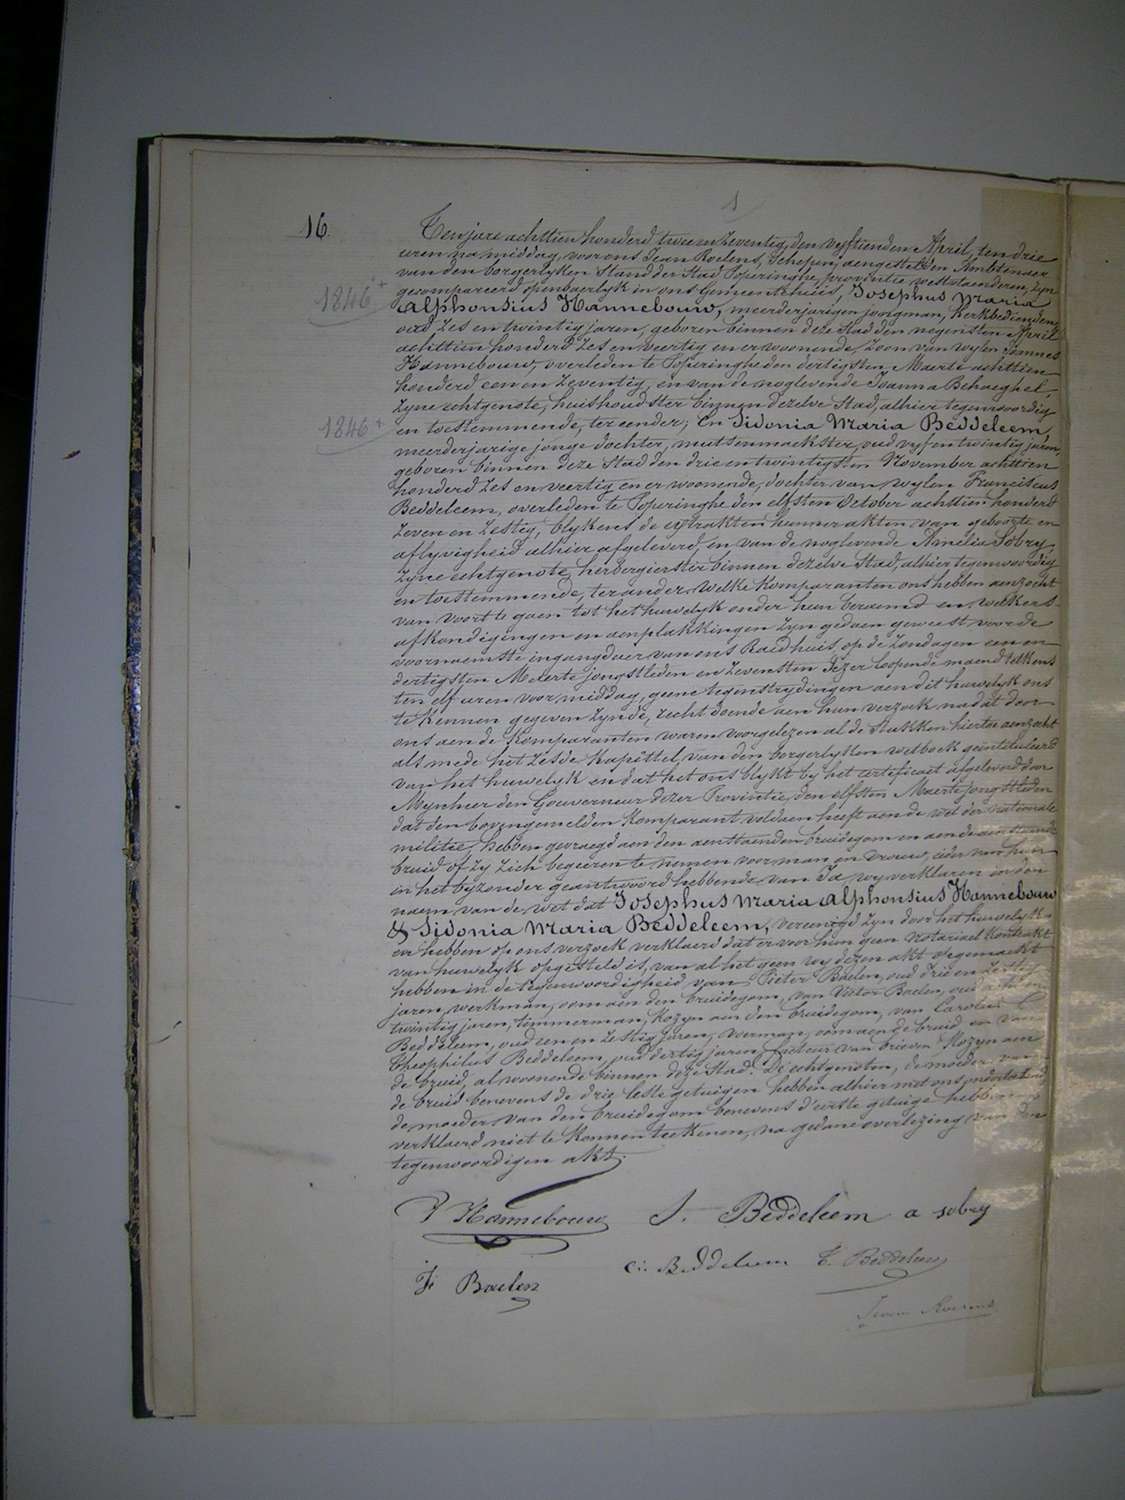 1
16
Ten jare achttien honderd twee en zeventig, den vyftienden April, ten drie
uren na middag, voor ons Jean Roelens, Schepen, aengestelden Ambtenaer
van den borgerlyken Stand der Stad Poperinghe, provintie Westvlaenderen, zyn
1846 +
gecompareerd openbaerlyk in ons Gemeentehuis, Josephus Maria
Alphonsius Hannebouw, meerderjarigen jongman, Kerkbediende,
oud zes en twintig jaren, geboren binnen deze Stad den negensten April
achttien honderd zes en veertig en er woonende, Zoon van wylen
Hannebouw, overleden te Poperinghe den dertigsten Maerte achttien
honderd een en zeventig, en van de noglevende Joanna Behaeghel,
zyne echtgenote, huishoudster binnen dezelve Stad, alhier tegenwoordig
1846 +
en toestemmende, ter eender; En Sidonia Maria Beddeleem,
meerderjarige jonge dochter, mutsenmaekster, oud vyf en twintig jaren,
geboren binnen deze Stad den drie en twintigsten November achttien
honderd zes en veertig en er woonende, dochter van wylen Franciscus
Beddeleem, overleden te Poperinghe den elfsten October achttien honderd
zeven en zestig, blykens de extrakten hunner akten van geboorte en
aflyvigheid alhier afgeleverd, en van de noglevende Amelia Sobry,
zyne echtgenote, herbergierster binnen dezelve Stad, alhier tegenwoordig
en toestemmende, ter ander. Welke Komparanten ons hebben aenzocht
van voort te gaen tot het huwelyk onder hun beraemd en welkers
afkondigingen en aenplakkingen zyn gedaen geweest voor de
voornaemste ingangdeur van ons Raedhuis, op de Zondagen een en
dertigsten Maerte jongstleden en zevensten dezer loopende maend telkens
ten elf uren voor middag, geene tegenstrydingen aen dit huwelyk ons
te kennen gegeven zynde, recht doende aen hun verzoek nadat door
ons aen de Komparanten waren voorgelezen al de Stukken hiertoe aenzocht
als mede het zesde kapittel van den borgerlyken wetboek geintituleerd
van het huwelyk en dat het ons blykt by het certificaet afgeleverd door
Mynheer den Gouverneur dezer Provintie, den elfsten Maerte jongstleden
dat den bovengemelden Komparant voldaen heeft aen de wet der nationale
militie, hebben gevraegd aen den aenstaenden bruidegom en aen de aenstaende
bruid of zy zich begeeren te nemen voor man en vrouw, ieder van hun
in het byzonder geantwoord hebbende van Ja, wy verklaren in den
naem van de wet dat Josephus Maria Alphonsius Hannebouw
& Sidonia Maria Beddeleem, vereenigd zyn door het huwelyk
en hebben op ons verzoek verklaerd dat er voor hun geen Notariael Kontrakt
van huwelyk opgesteld is, van al het geen wy dezen akt opgemaekt
hebben in de tegenwoordigheid van Pieter Baelen, oud drie en zestig
jaren, werkman, oom aen den bruidegom, van Victor Baelen, oud acht en
twintig jaren, timmerman, Kozyn aen den bruidegom, van Carolus
Beddeleem, oud een en zestig jaren, oom aen de bruid en van
Theophilus Beddeleem, oud dertig jaren, facteur van brieven, Kozyn aen
de bruid, al woonende binnen deze Stad. De echtgenoten, de moeder van
de bruid benevens de drie leste getuigen hebben alhier met ons onderteekend
de moeder van den bruidegom benevens d'eerste getuige hebben
verklaerd niet te konnen teekenen, na gedane overlezing van den
tegenwoordigen akt.
J Hannebouw S. Beddeleem a sobry
Baelen C: Beddeleem T. Beddeleem
Jean Roelens